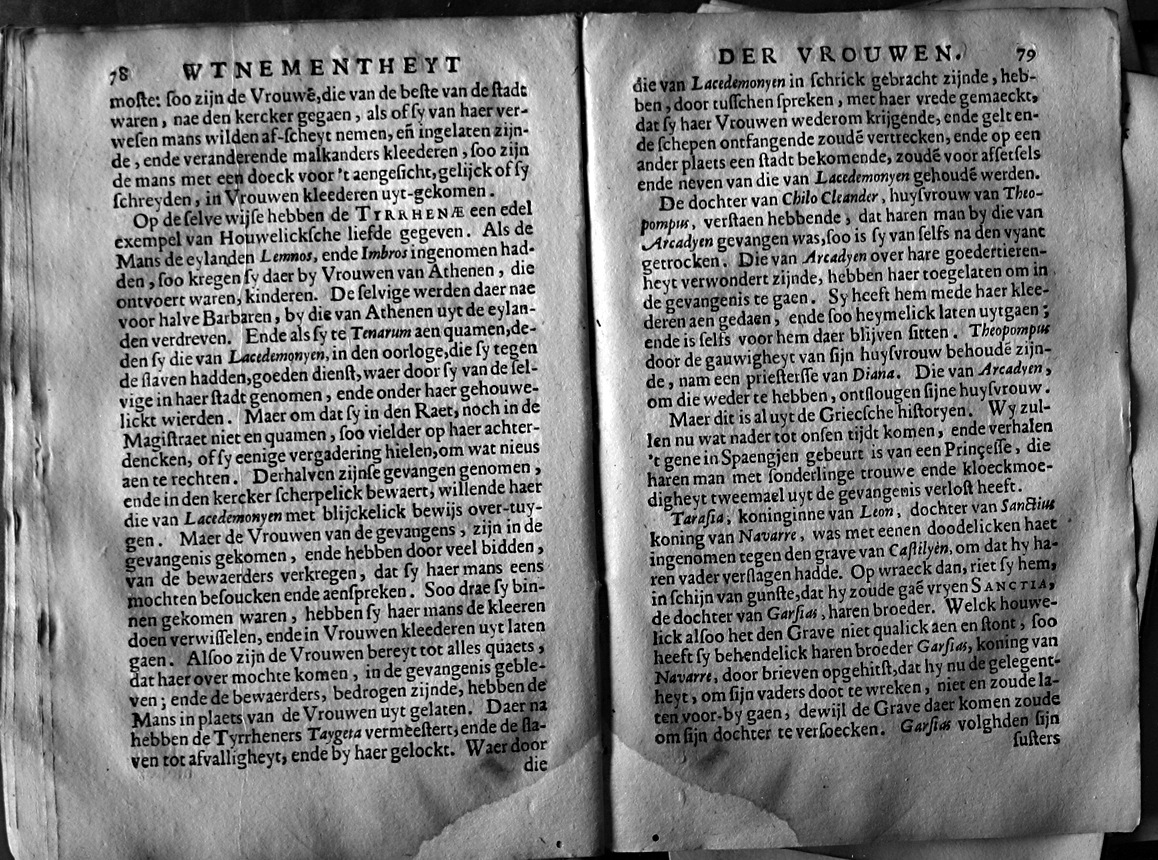 78 WTNEMENTHEYT
moste: soo zijn de Vrouwē, die van de beste van de stadt
waren, nae den kercker gegaen, als of sy van haer ver-
wesen mans wilden af-scheyt nemen, eñ ingelaten zijn-
de, ende veranderende malkanders kleederen, soo zijn
de mans met een doeck voor 't aengesicht, gelijck of sy
schreyden, in Vrouwen kleederen uyt-gekomen.
Op de selve wijse hebben de TYRRHENÆ een edel
exempel van Houwelicksche liefde gegeven. Als de
Mans de eylanden Lemnos, ende Imbros ingenomen had-
den, soo kregen sy daer by Vrouwen van Athenen, die
ontvoert waren, kinderen. De selvige werden daer nae
voor halve Barbaren, by die van Athenen uyt de eylan-
den verdreven. Ende als sy te Tenarum aen quamen, de-
den sy die van Lacedemonyen, in den oorloge, die sy tegen
de slaven hadden, goeden dienst, waer door sy van de sel-
vige in haer stadt genomen, ende onder haer gehouwe-
lickt wierden. Maer om dat sy in den Raet, noch in de
Magistraet niet en quamen, soo vielder op haer achter-
dencken, of sy eenige vergadering hielen, om wat nieus
aen te rechten. Derhalven zijnse gevangen genomen,
ende in den kercker scherpelick bewaert, willende haer
die van Lacedemonyen met blijckelick bewijs over-tuy-
gen. Maer de Vrouwen van de gevangens, zijn in de
gevangenis gekomen, ende hebben door veel bidden,
van de bewaerders verkregen, dat sy haer mans eens
mochten besoucken ende aenspreken. Soo drae sy bin-
nen gekomen waren, hebben sy haer mans de kleeren
doen verwisselen, ende in Vrouwen kleederen uyt laten
gaen. Alsoo zijn de Vrouwen bereyt tot alles quaets,
dat haer over mochte komen, in de gevangenis geble-
ven; ende de bewaerders, bedrogen zijnde, hebben de
Mans in plaets van de Vrouwen uyt gelaten. Daer na
hebben de Tyrrheners Taygeta vermeestert, ende de sla-
ven tot afvalligheyt, ende by haer gelockt. Waer door
die
DER VROUWEN. 79
die van Lacedemonyen in schrick gebracht zijnde, heb-
ben, door tusschen spreken, met haer vrede gemaeckt,
dat sy haer Vrouwen wederom krijgende, ende gelt en-
de schepen ontfangende zoudē vertrecken, ende op een
ander plaets een stadt bekomende, zoudē voor affetsels
ende neven van die van Lacedemonyen gehoudē werden.
De dochter van Chilo Cleander, huysvrouw van Theo-
pompus, verstaen hebbende, dat haren man by die van
Arcadyen gevangen was, soo is sy van selfs na den vyant
getrocken. Die van Arcadyen over hare goedertieren-
heyt verwondert zijnde, hebben haer toegelaten om in
de gevangenis te gaen. Sy heeft hem mede haer klee-
deren aen gedaen, ende soo heymelick laten uytgaen;
ende is selfs voor hem daer blijven sitten. Theopompus
door de gauwigheyt van sijn huysvrouw behoudē zijn-
de, nam een priestersse van Diana. Die van Arcadyen,
om die weder te hebben, ontslougen sijne huysvrouw.
Maer dit is al uyt de Griecsche historyen. Wy zul-
len nu wat nader tot onsen tijdt komen, ende verhalen
't gene in Spaengjen gebeurt is van een Prinçesse, die
haren man met sonderlinge trouwe ende kloeckmoe-
digheyt tweemael uyt de gevangenis verlost heeft.
Tarasia, koninginne van Leon, dochter van Sanctius
koning van Navarre, was met eenen doodelicken haet
ingenomen tegen den grave van Castilyen, om dat hy ha-
ren vader verslagen hadde. Op wraeck dan, riet sy hem,
in schijn van gunste, dat hy zoude gaē vryen SANCTIA,
de dochter van Garsias, haren broeder. Welck houwe-
lick alsoo het den Grave niet qualick aen en stont, soo
heeft sy behendelick haren broeder Garsias, koning van
Navarre, door brieven opgehitst, dat hy nu de gelegent-
heyt, om sijn vaders doot te wreken, niet en zoude la-
ten voor-by gaen, dewijl de Grave daer komen zoude
om sijn dochter te versoecken. Garsias volghden sijn
susters